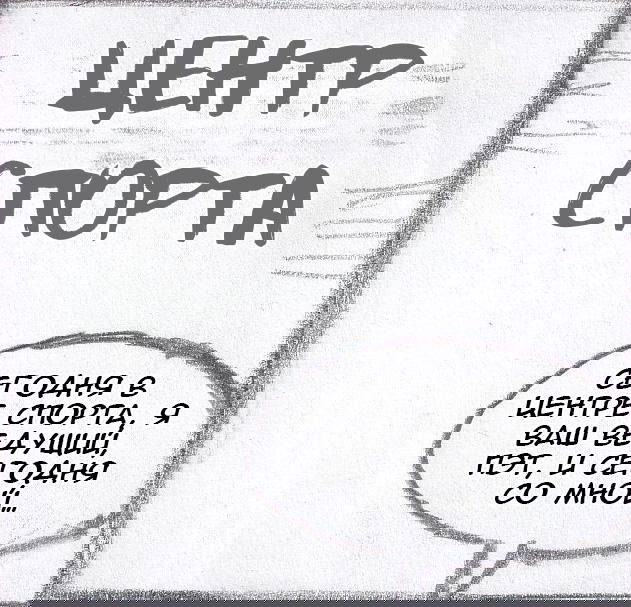 ЦЕНТР
СПОРТА
СЕГОДНЯ В
ЦЕНТРЕ СПОРТА, Я
ВАШ ВЕДУЩИЙ,
ПЭТ, И СЕГОДНЯ
СО МНОЙ...